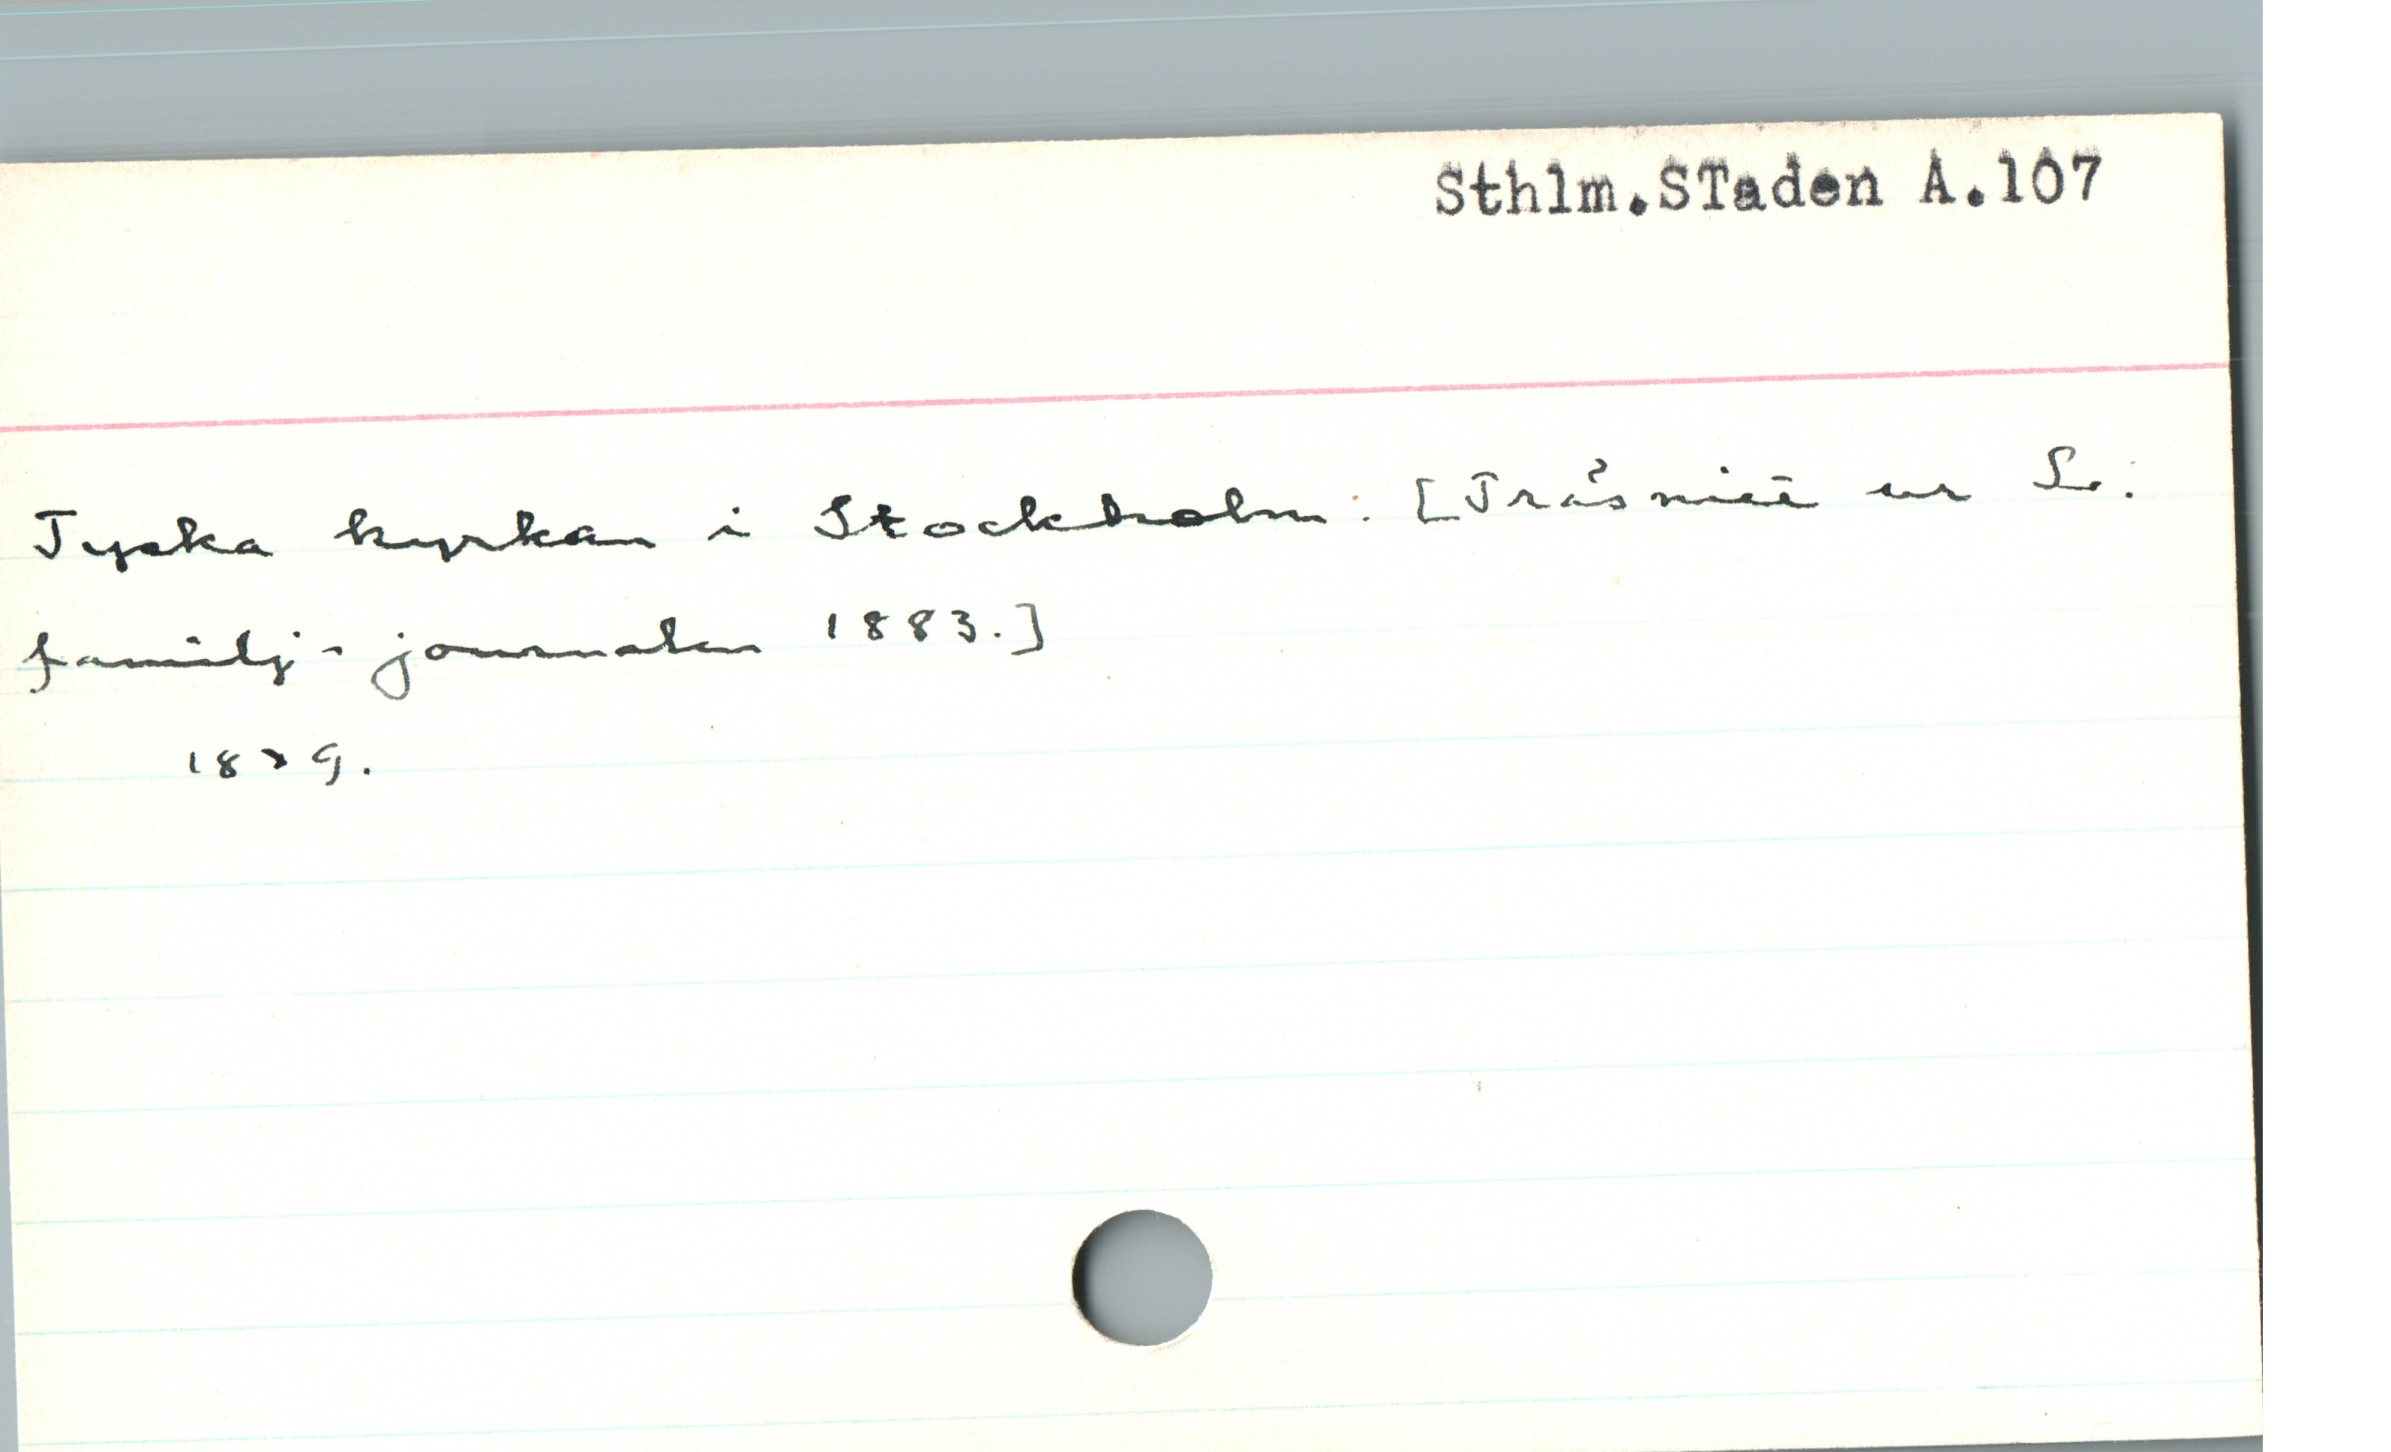 Sthlm.STaden A.107
Tyska kyrkan i Stockholm. [Träsnitt ur S.
familj-journalen 1883.]
1879.